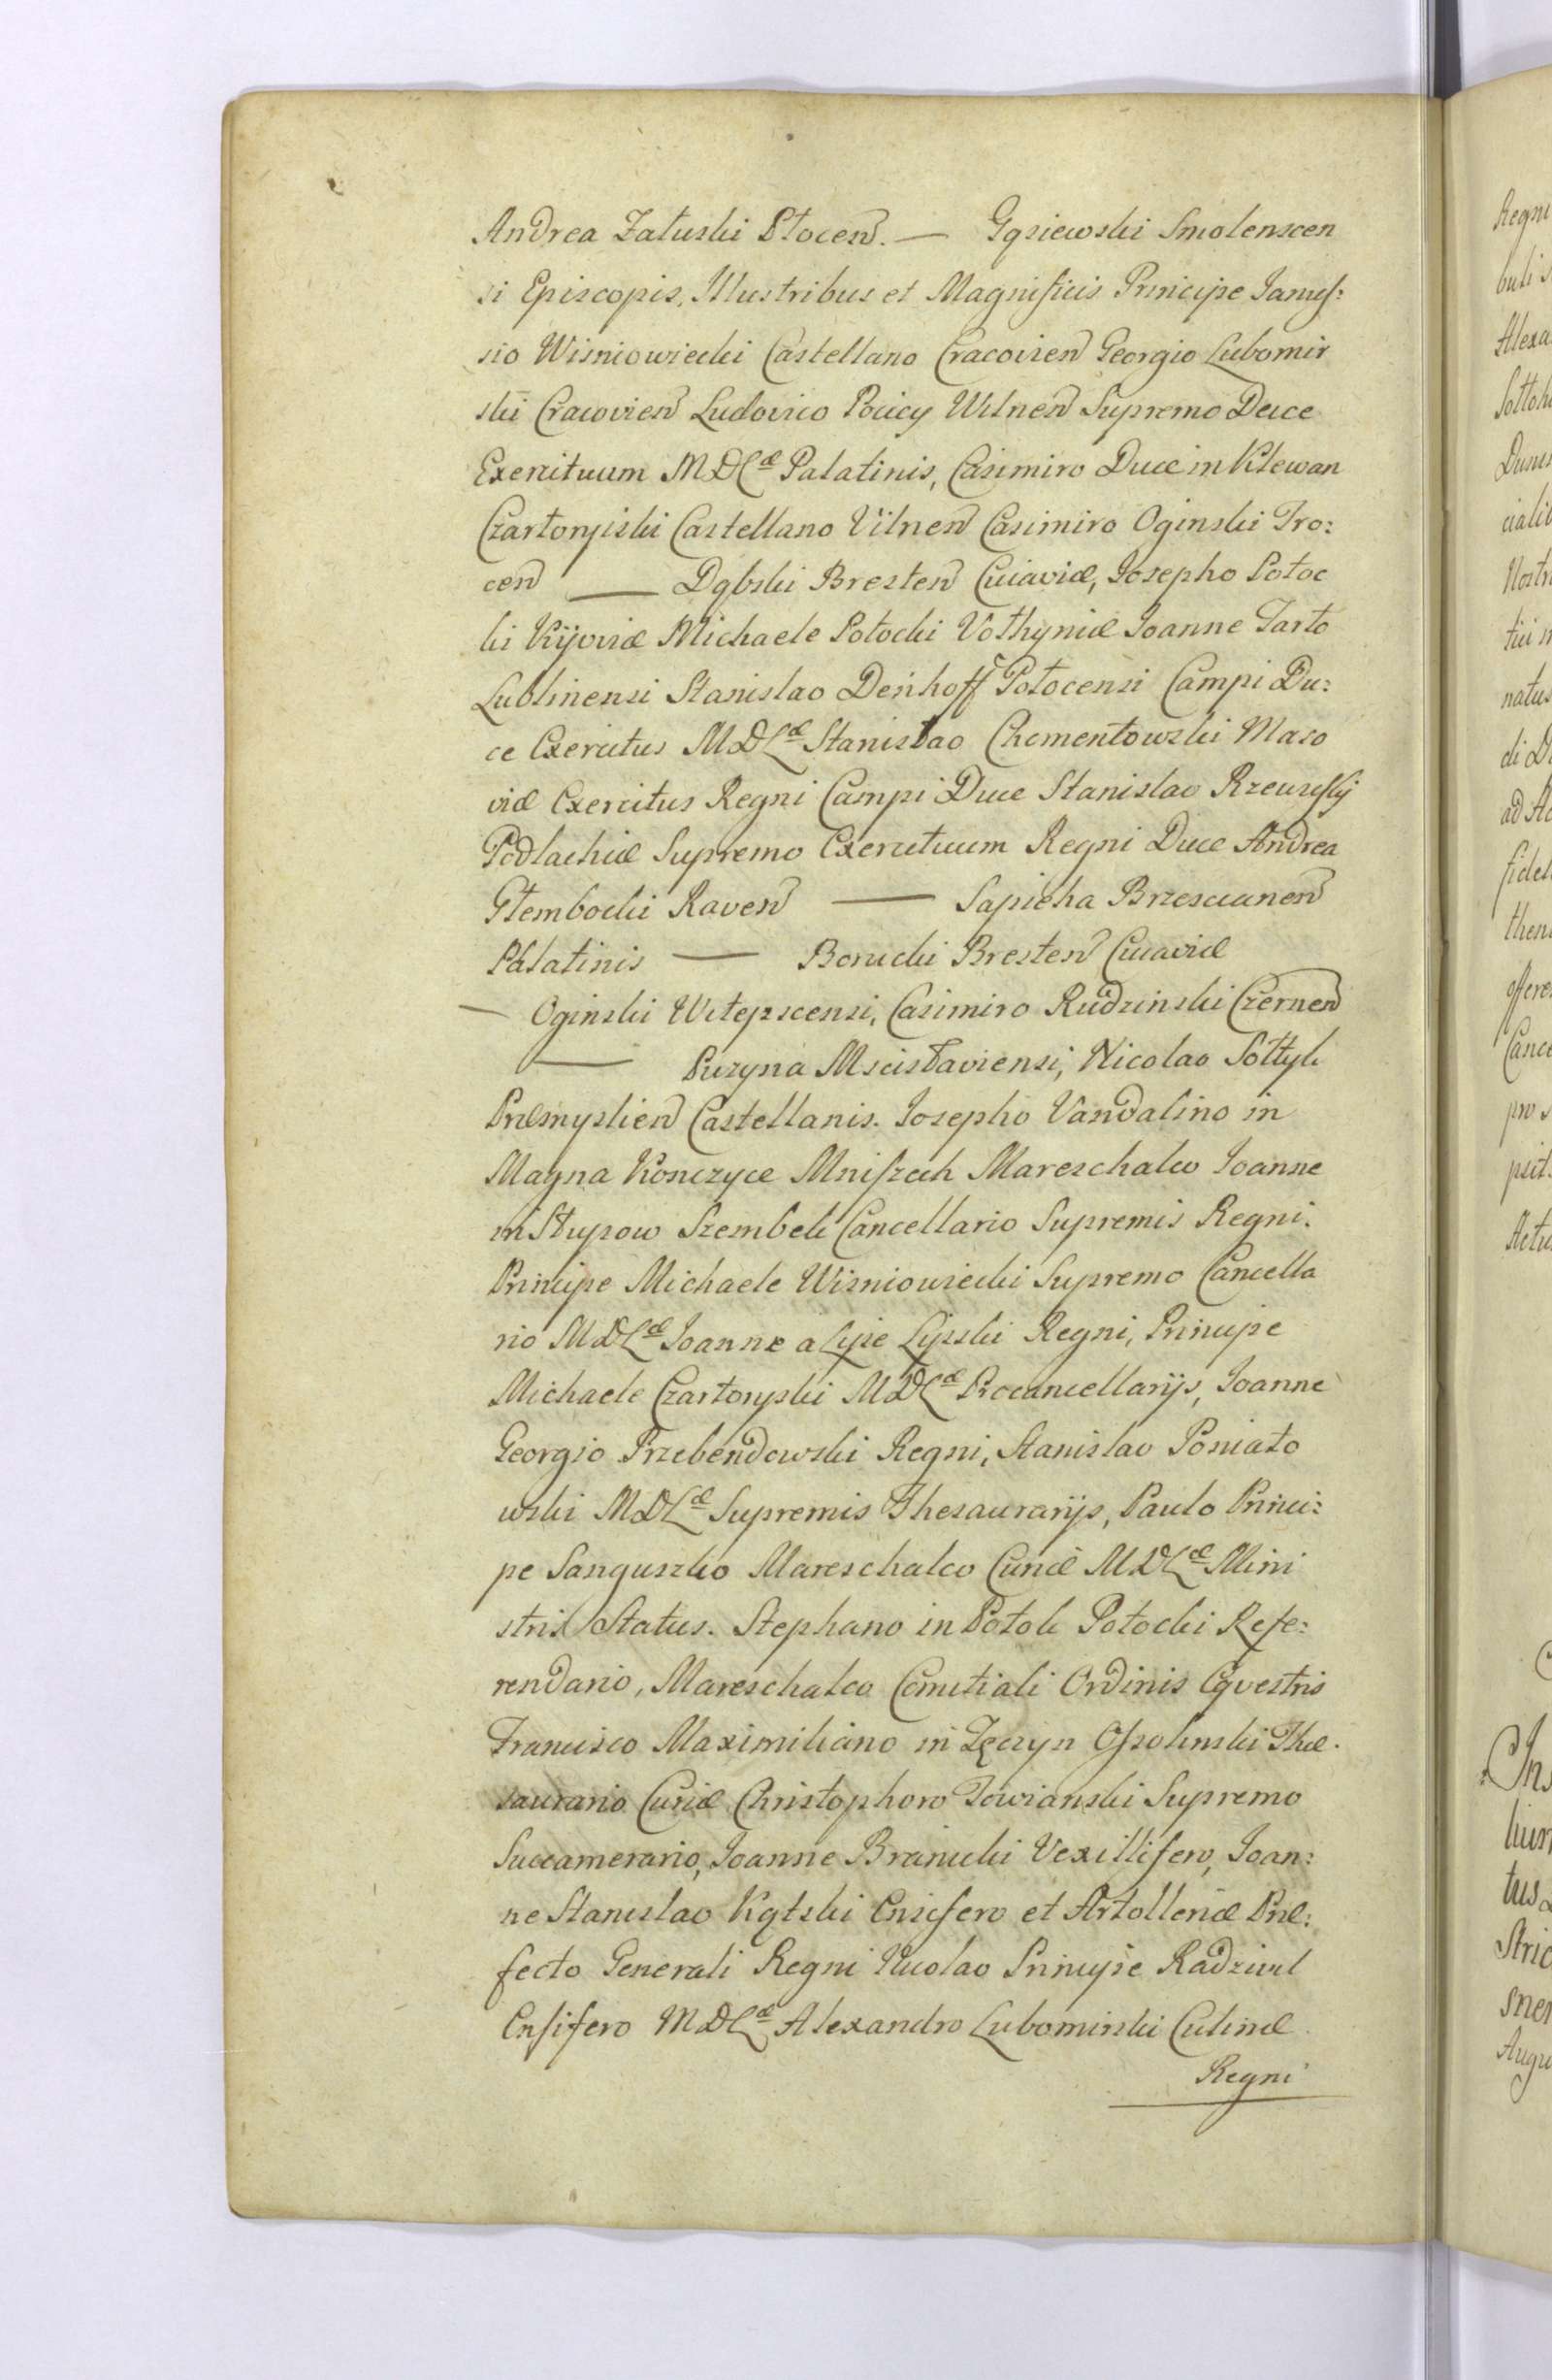 Andrea Załuski Płocen. — Gąsiewski Smolenscen
si Episcopis, Illustribus et Magnificis Principe Janus:
sio Wisniowiecki Castellano Cracovien Georgio Lubomir
ski Cracovien Ludovico Pociey Wilnen Supremo Duce
Exercituum MDLæ Palatinis, Casimiro Duce in Klewan
Czartoryiski Castellano Vilnen Casimiro Oginski Tro:
cen — Dąbski Bresten Cuiaviæ, Iosepho Potoc
ki Kijoviæ Michaele Potocki Vołhyniæ Ioanne Tarło
Lublinensi Stanislao Denhoff Połocensi Campi Du:
ce Exercitus MDLæ Stanisłao Chomentowski Maso
viæ Exercitus Regni Campi Duce Stanislao Rzewuskij
Podlachiæ Supremo Exercituum Regni Duce Andrea
Głembocki Raven — Sapieha Brzescianen
Palatinis — Borucki Bresten Cuiaviæ
— Oginski Witepscensi, Casimiro Rudzinski Czernen
— Puzyna Mscisłaviensi, Nicolao Sołtyk
Præmyslien Castellanis. Iosepho Vandalino in
Magna Konczyce Mniszech Mareschalco Ioanne
in Słupow Szembek Cancellario Supremis Regni.
Principe Michaele Wisniowiecki Supremo Cancella
rio MDLæ Ioanne a Lipe Lipski Regni, Principe
Michaele Czartoryski MDLæ Procancellarijs, Ioanne
Georgio Przebendowski Regni, Stanislao Poniato
wski MDLæ Supremis Thesaurarijs, Paulo Princi:
pe Sanguszko Mareschalco Curiæ MDLæ Mini
stris Status. Stephano in Potok Potocki Refe:
rendario, Mareschalco Comitiali Ordinis Eqvestris
Francisco Maximiliano in Tęczyn Ossolinski Thæ.
saurario Curiæ Christophoro Towianski Supremo
Succamerario, Ioanne Branicki Vexillifero, Ioan:
ne Stanislao Kątski Ensifero et Artolleriæ Præ:
fecto Generali Regni Nicolao Principe Radziwil
Ensifero MDLæ Alexandro Lubomirski Culinæ
Regni